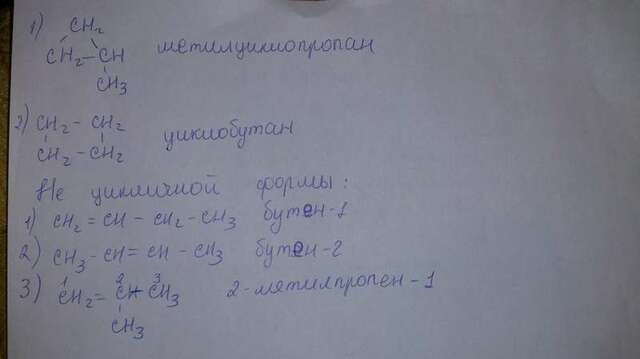 1) CH₂
CH₂ - CH метилциклопропан
CH₃
2) CH₂ - CH₂
CH₂ - CH₂ циклобутан
Не цикличной формы:
1) CH₂ = CH - CH₂ - CH₃ бутен-1
2) CH₃ - CH = CH - CH₃ бутен-2
1 2 3
3) CH₂ = CH CH₃ 2-метилпропен-1
CH₃